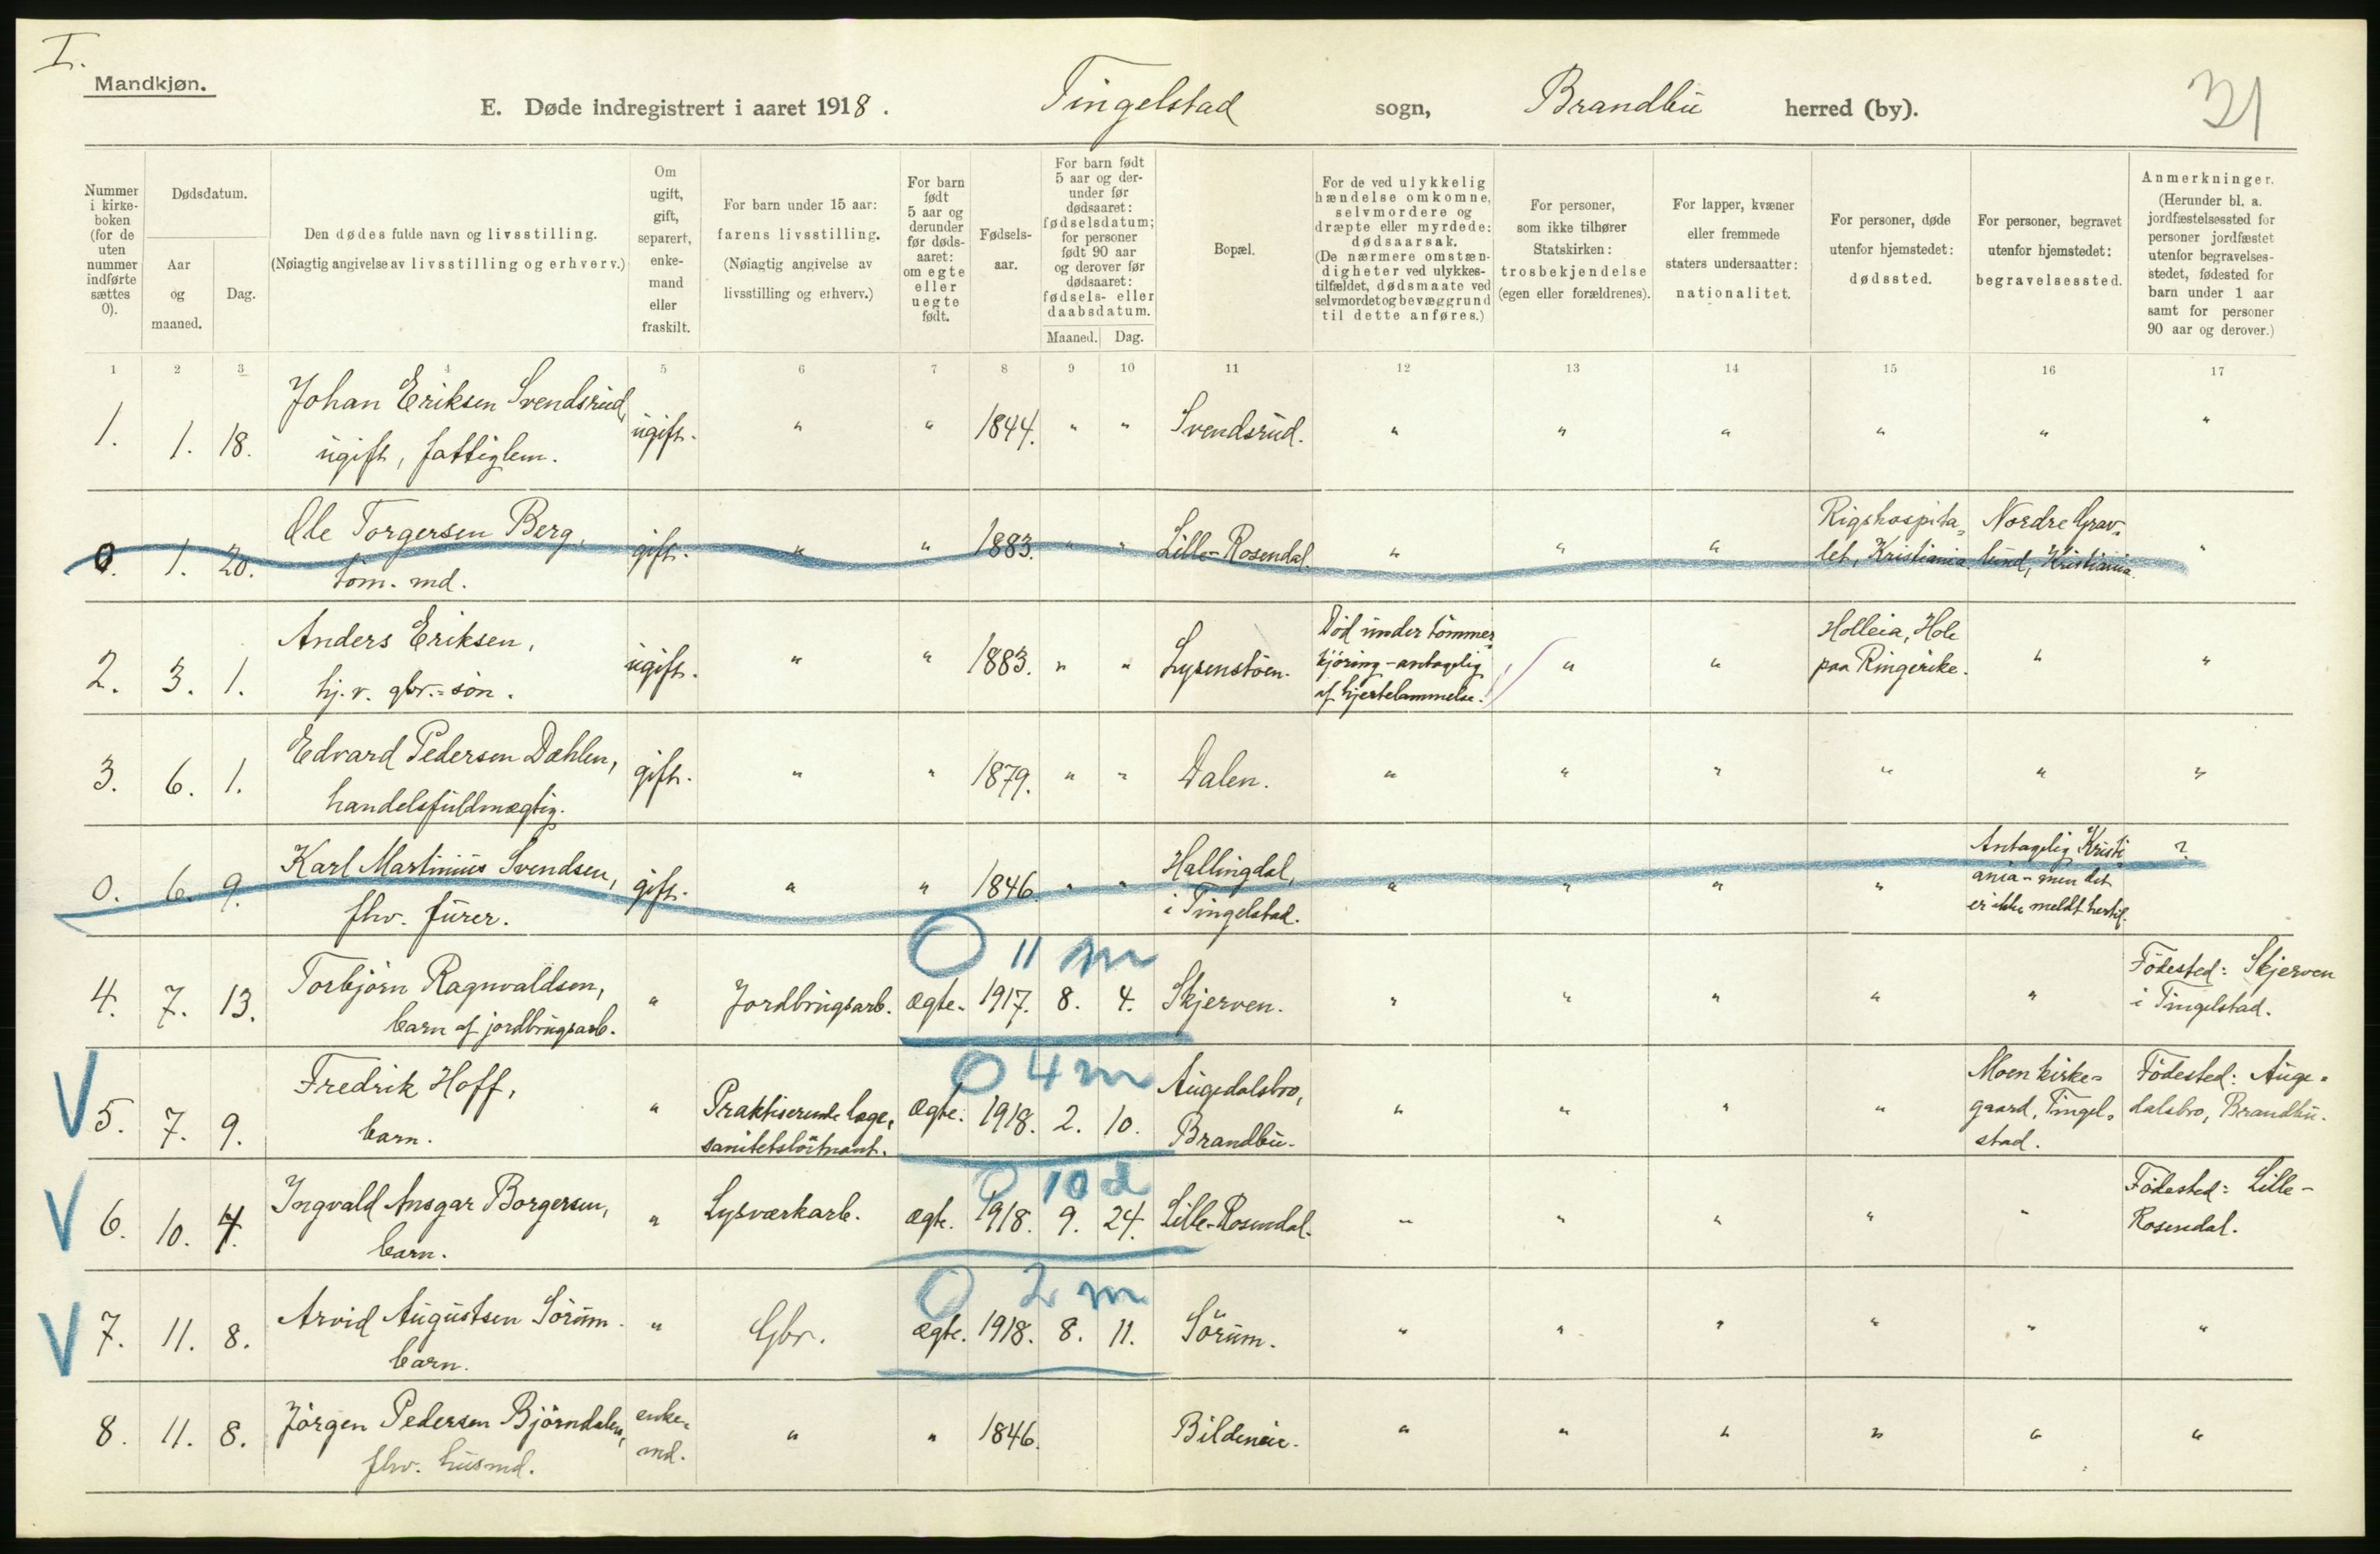 I.
Mandkjøn.
E. Døde indregistrert i aaret 1918. Tingelstad sogn, Brandbu herred (by).
31
Nummer i kirke-boken (for de uten nummer indførte sættes 0).
Dødsdatum.
Aar og maaned.
Dag.
Den dødes fulde navn og livsstilling.
(Nøiagtig angivelse av livsstilling og erhverv.)
Om ugift, gift, separert, enke-mand eller fraskilt.
For barn under 15 aar: farens livsstilling.
(Nøiagtig angivelse av livsstilling og erhverv.)
For barn født 5 aar og derunder før døds-aaret: om egte eller uegte født.
Fødsels-aar.
For barn født 5 aar og der-under før dødsaaret: fødselsdatum; for personer født 90 aar og derover før dødsaaret: fødsels- eller daabsdatum.
Maaned. Dag.
Bopæl.
For de ved ulykkelig hændelse omkomne, selvmordere og dræpte eller myrdede: dødsaarsak.
(De nærmere omstæn-digheter ved ulykkes-tilfældet, dødsmaate ved selvmordet og bevæggrund til dette anføres.)
For personer, som ikke tilhører Statskirken: trosbekjendelse (egen eller forældrenes).
For lapper, kvæner eller fremmede staters undersaatter: nationalitet.
For personer, døde utenfor hjemstedet: dødssted.
For personer, begravet utenfor hjemstedet: begravelsessted.
Anmerkninger.
(Herunder bl. a. jordfæstelsessted for personer jordfæstet utenfor begravelses-stedet, fødested for barn under 1 aar samt for personer 90 aar og derover.)
1 2 3 4 5 6 7 8 9 10 11 12 13 14 15 16 17
1. 1. 18. Johan Eriksen Svendsrud, ugift, fattiglem. ugift. " " 1844. " " Svendsrud. " " " " " "
0. 1. 20. Ole Torgersen Berg, töm. md. gift. " " 1883. " " Lille-Rosendal. " " " Rigshospita-let, Kristiania. Nordre Grav-lund, Kristiania. "
2. 3. 1. Anders Eriksen, hj. v. gbr.-sön. ugift. " " 1883. " " Lysenstöen. Död under tömmer-kjöring - antagelig af hjertelammelse. " " Holleia, Hole paa Ringerike. " "
3. 6. 1. Edvard Pedersen Dæhlen, handelsfuldmægtig. gift. " " 1879. " " Dalen. " " " " " "
0. 6. 9. Karl Martinius Svendsen, fhv. furer. gift. " " 1846. " " Hallingdal, i Tingelstad. " " " " Antagelig Kristi-ania - men det er ikke meldt hertil. ?
0 11 m
4. 7. 13. Torbjörn Ragnvaldsen, barn af jordbrugsarb. " Jordbrugsarb. Ægte. 1917. 8. 4. Skjerven. " " " " " Födested: Skjerven i Tingelstad.
0 4 m
V 5. 7. 9. Fredrik Hoff, barn. " Praktiserende læge, sanitetslöitnant. Ægte. 1918. 2. 10. Augedalsbro, Brandbu. " " " " Moen kirke-gaard, Tingel-stad. Födested: Auge-dalsbro, Brandbu.
0 10 d
V 6. 10. 4. Ingvald Ansgar Borgersen, barn. " Lysværkarb. Ægte. 1918. 9. 24. Lille-Rosendal. " " " " " Födested: Lille-Rosendal.
0 2 m
V 7. 11. 8. Arvid Augustsen Sörum. barn. " Gbr. Ægte. 1918. 8. 11. Sörum. " " " " " "
8. 11. 8. Jörgen Pedersen Björndalen, fhv. husmd. enke-md. " " 1846. Bildeneie. " " " " " "